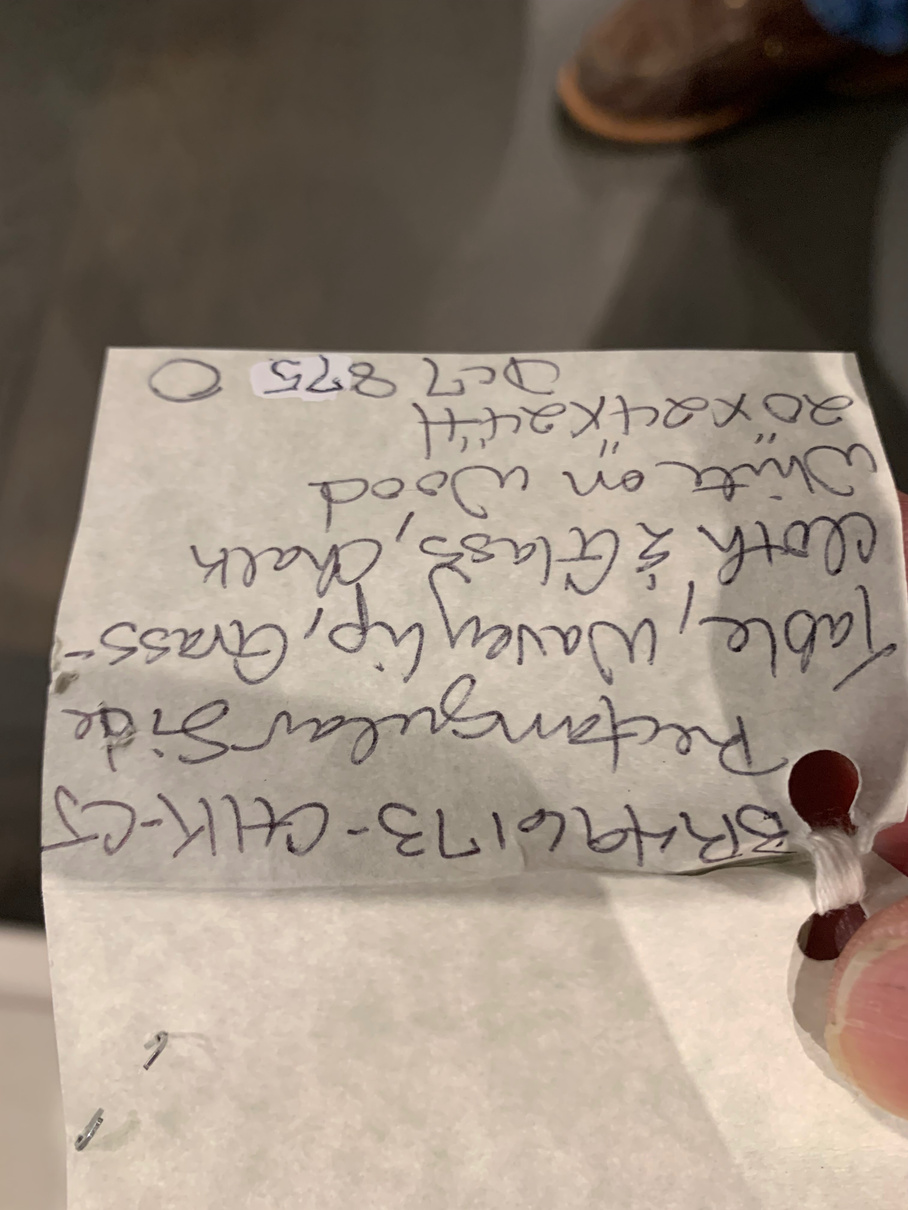 BRH96173-CHK-CJ
Rectangular Side
Table, Waverly Lip, Grass-
cloth & Glass, Chalk
White on Wood
20"x24"x24"H
875